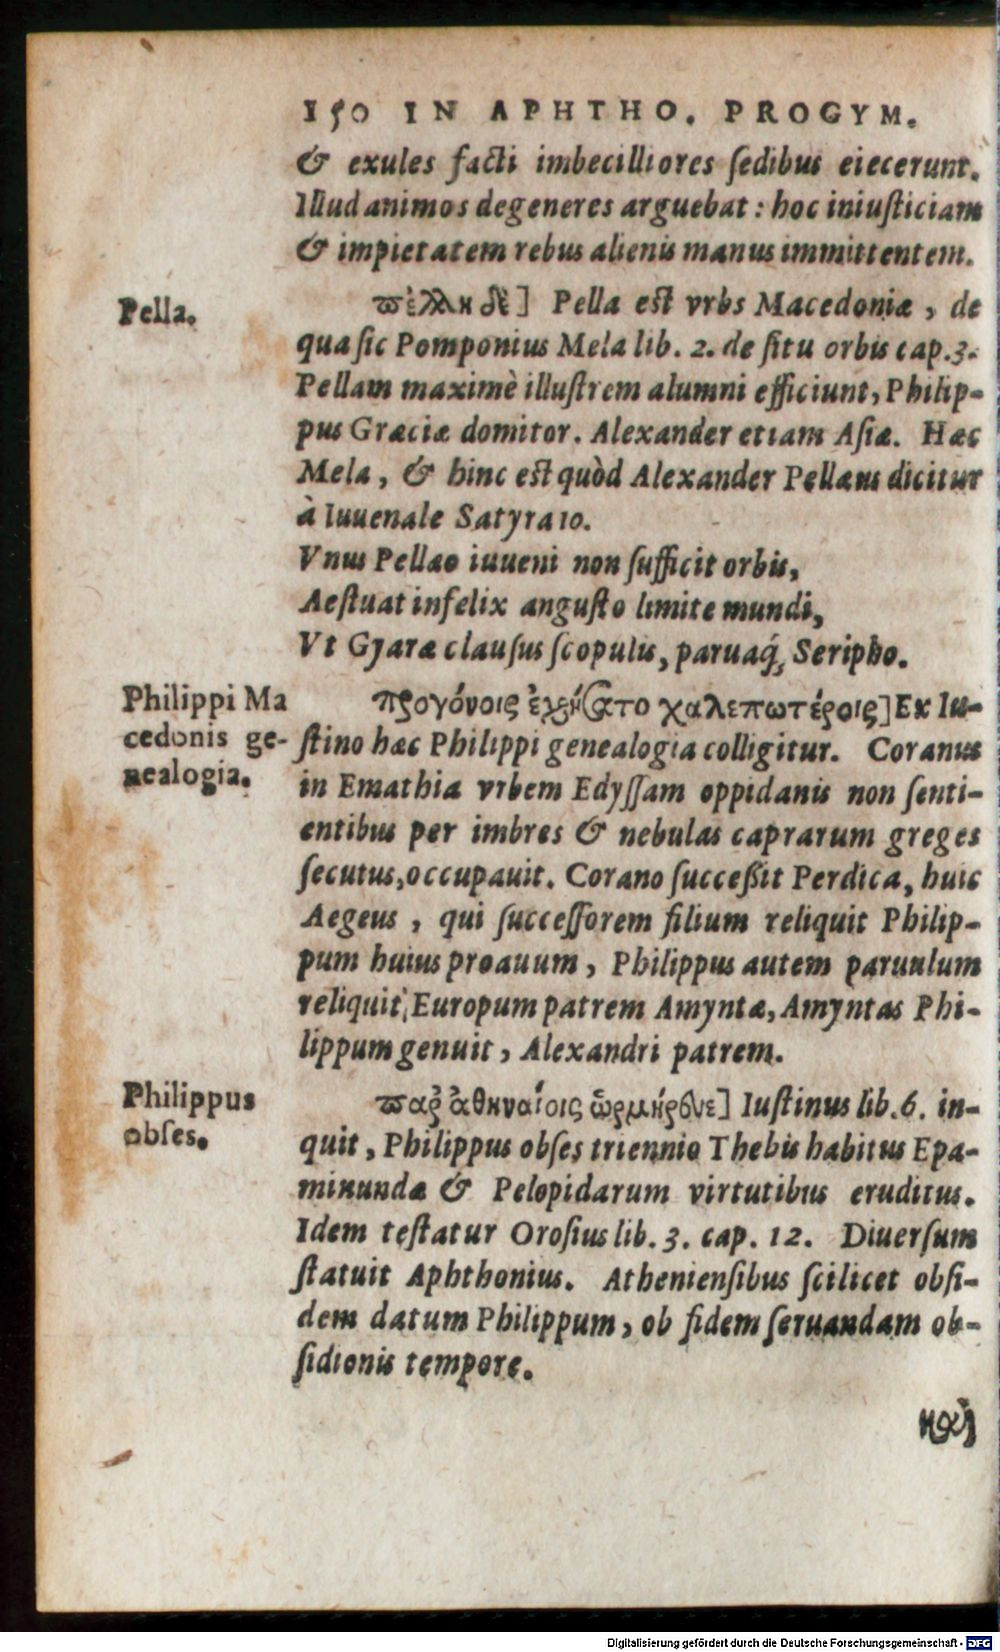 150 IN APHTHO. PROGYM.
& exules facti imbecilliores sedibus eiecerunt.
Illud animos degeneres arguebat: hoc iniusticiam
& impietatem rebus alienis manus immittentem.
Pella.
πέλλη δὲ] Pella est vrbs Macedoniæ, de
qua sic Pomponius Mela lib. 2. de situ orbis cap.3.
Pellam maximè illustrem alumni efficiunt, Philip-
pus Græciæ domitor. Alexander etiam Asiæ. Hæc
Mela, & hinc est quòd Alexander Pellæus dicitur
à Iuuenale Satyra 10.
Vnus Pellæo iuueni non sufficit orbis,
Aestuat infelix angusto limite mundi,
Vt Gyaræ clausus scopulis, paruaq́; Seripho.
Philippi Ma
cedonis ge-
nealogia.
προγόνοις ἐχρήσατο χαλεπωτέροις] Ex Iu-
stino hæc Philippi genealogia colligitur. Coranus
in Emathia vrbem Edyssam oppidanis non senti-
entibus per imbres & nebulas caprarum greges
secutus, occupauit. Corano successit Perdica, huic
Aegeus, qui successorem filium reliquit Philip-
pum huius proauum, Philippus autem paruulum
reliquit, Europum patrem Amyntæ, Amyntas Phi-
lippum genuit, Alexandri patrem.
Philippus
obses.
παρ' ἀθηναίοις ὡρμήρευε] Iustinus lib.6. in-
quit, Philippus obses triennio Thebis habitus Epa-
minundæ & Pelopidarum virtutibus eruditus.
Idem testatur Orosius lib. 3. cap. 12. Diuersum
statuit Aphthonius. Atheniensibus scilicet obsi-
dem datum Philippum, ob fidem seruandam ob-
sidionis tempore.
καὶ
Digitalisierung gefördert durch die Deutsche Forschungsgemeinschaft - DFG